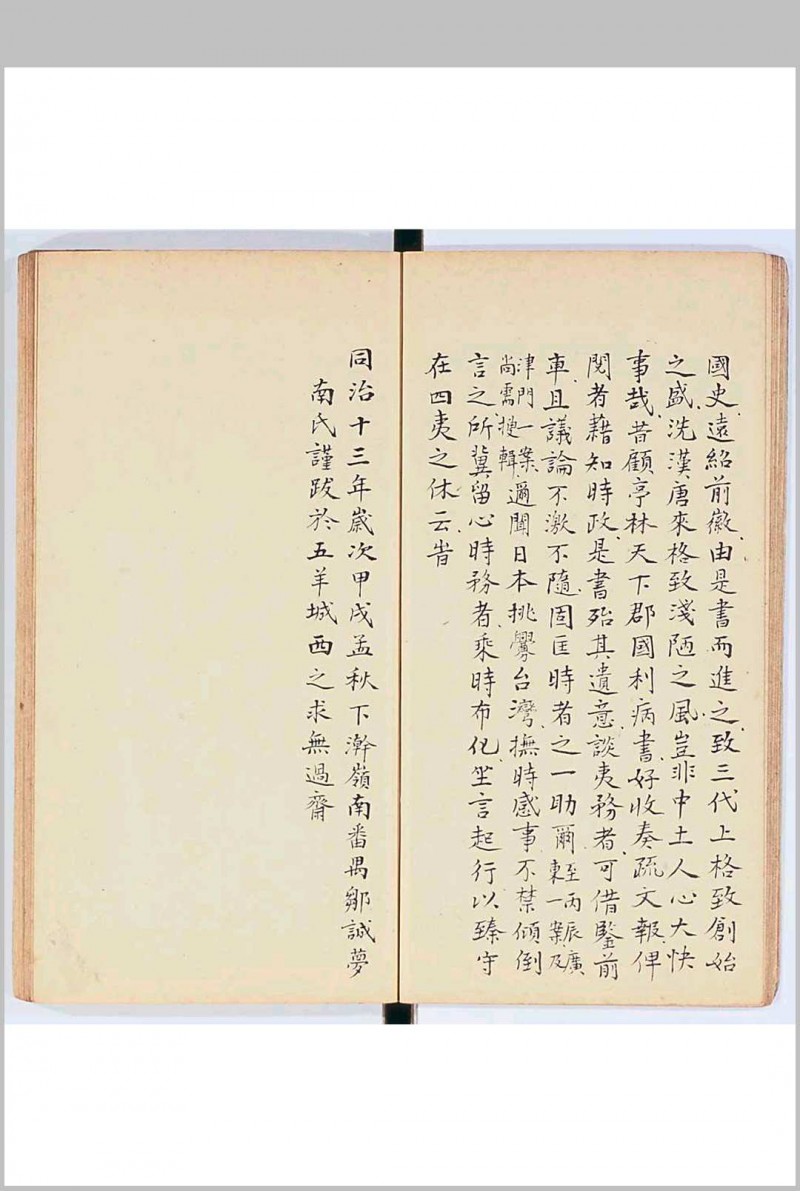 國史遠紹前徽由是書而進之致三代上格致創始
之盛洗漢唐來格致淺陋之風豈非中土人心大快
事哉昔顧亭林天下郡國利病書好收奏疏文報俾
閱者藉知時政是書殆其遺意談夷務者可借鑒前
車且議論不激不隨固匡時者之一助爾至丙辰廣東一案及
津門一案尚需捷輯邇聞日本挑釁台灣撫時感事不禁傾倒
言之所冀留心時務者乘時布化坐言起行以臻守
在四夷之休云旹
同治十三年歲次甲戌孟秋下澣嶺南番禺鄒誠夢
南氏謹跋於五羊城西之求無過齋